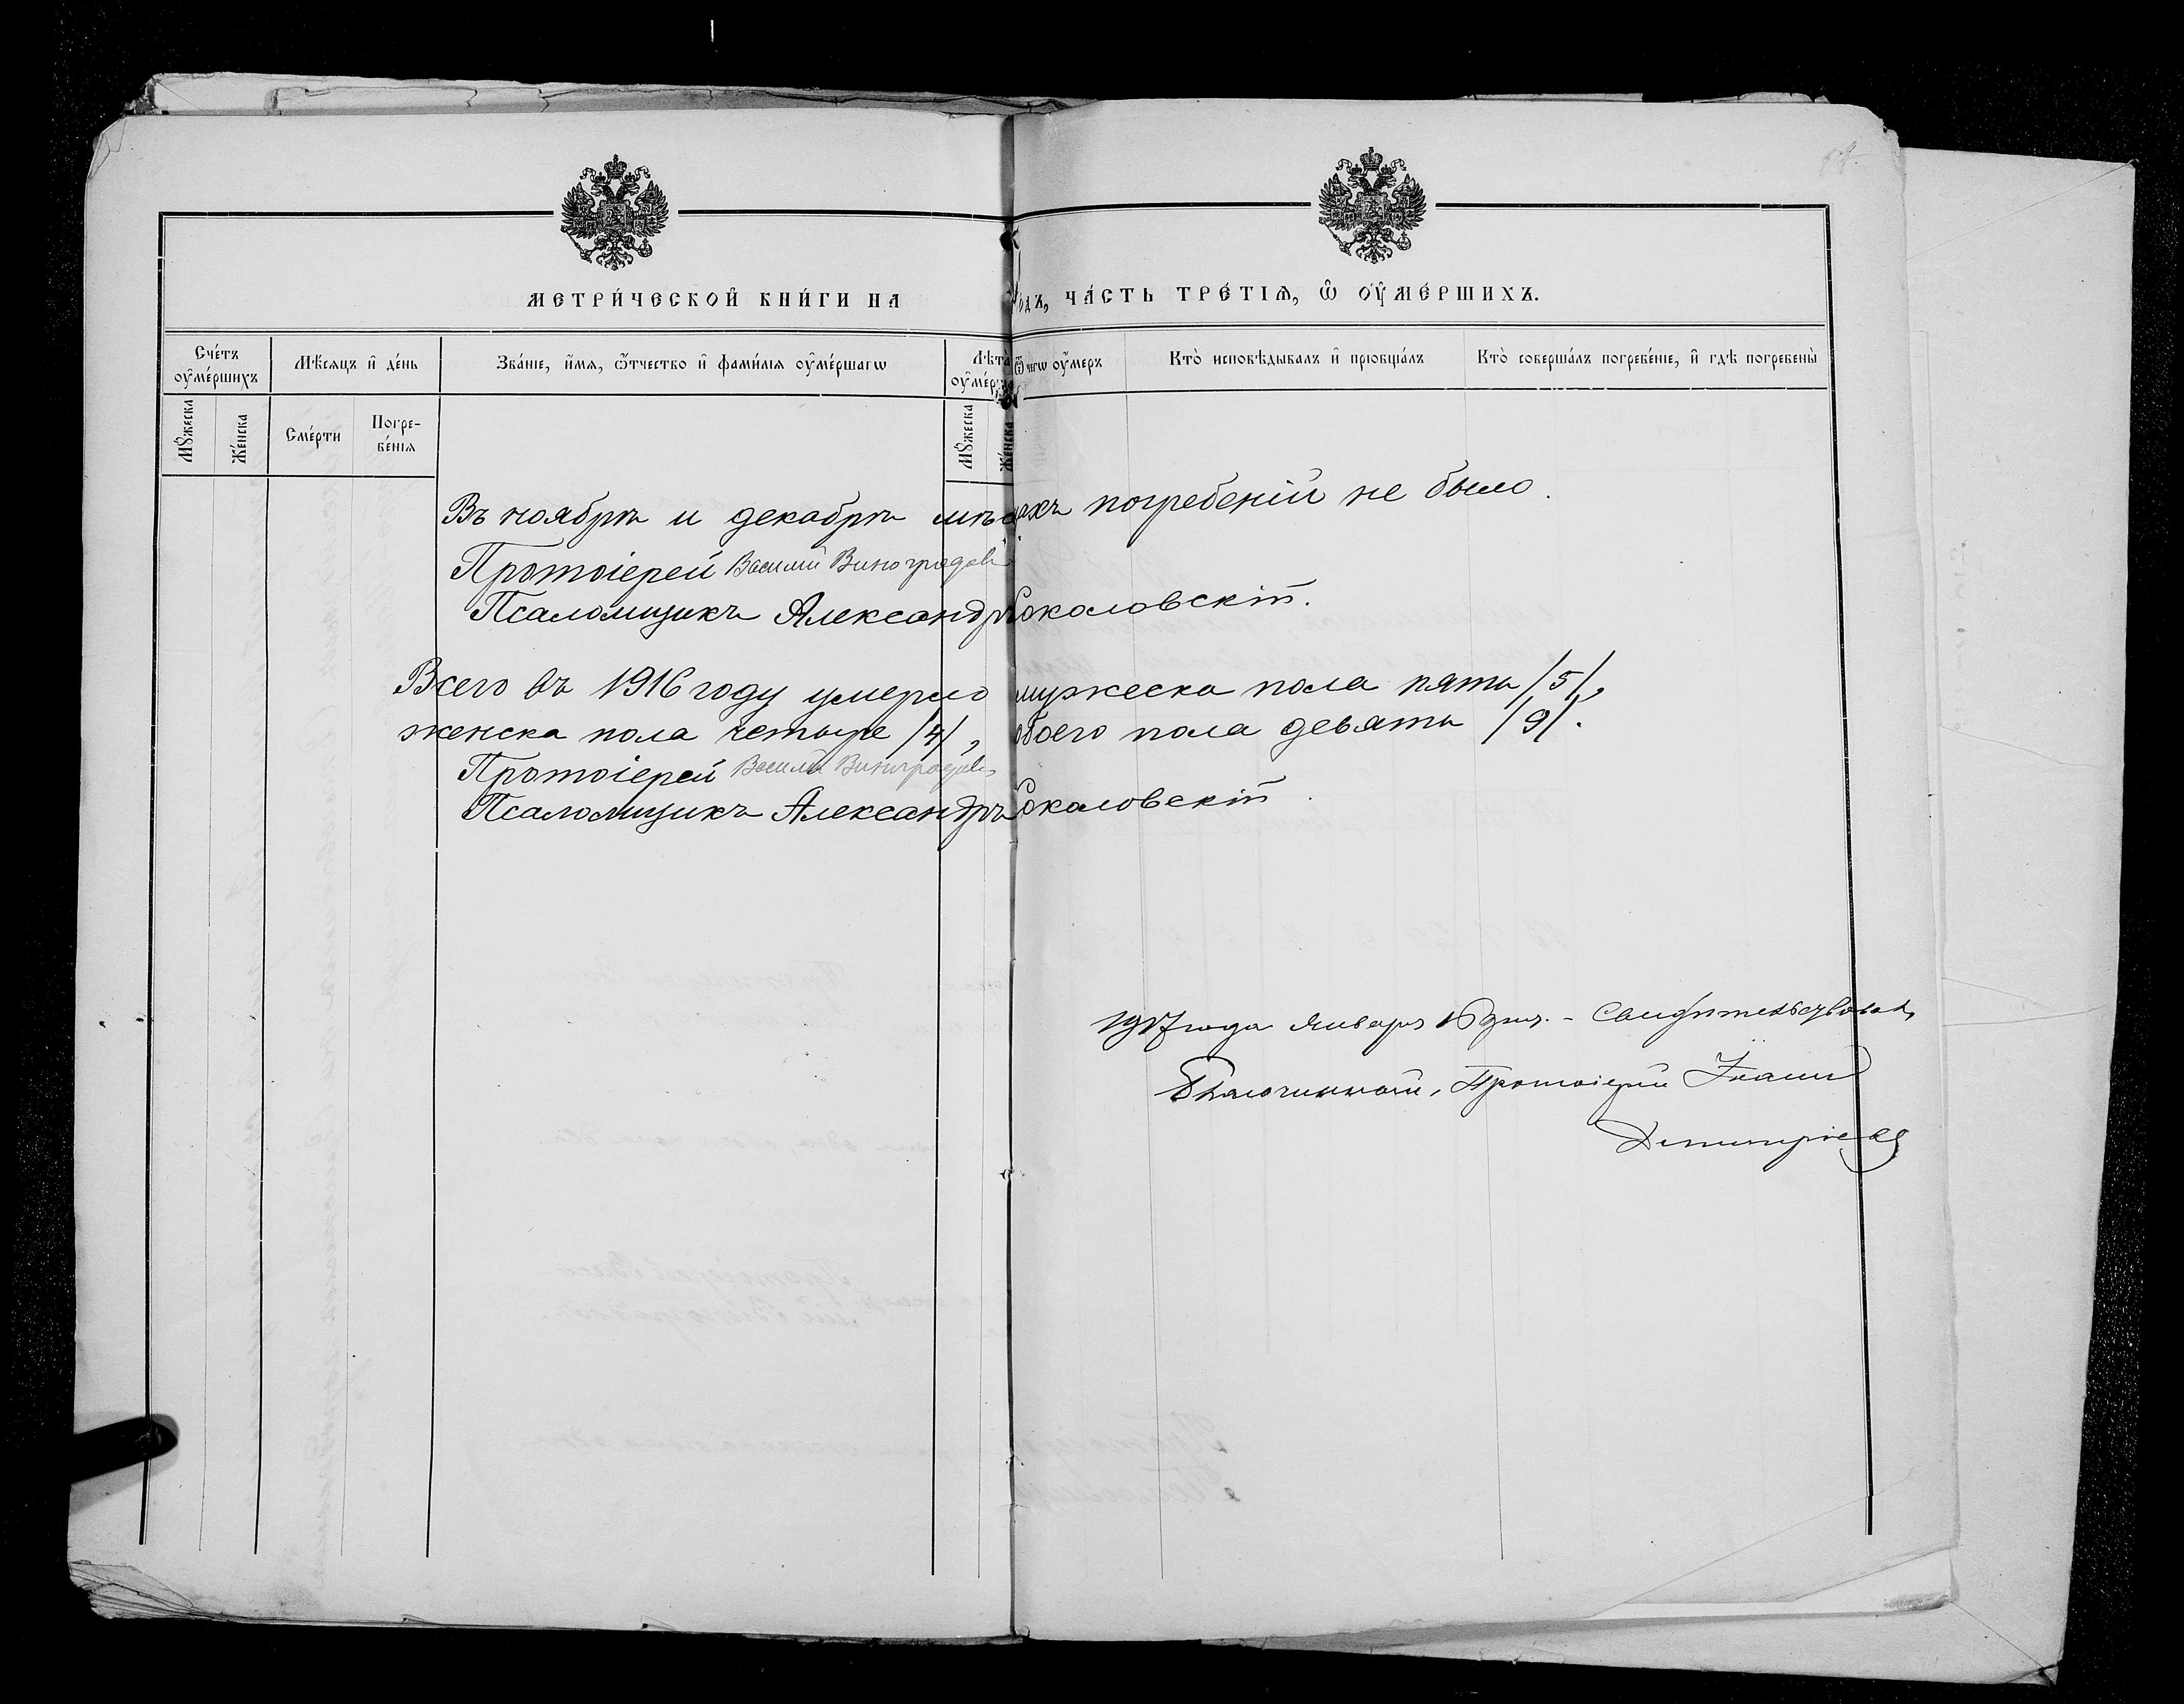 МЕТРИ́ЧЕСКОЙ КНИ́ГИ НА
ЧА́СТЬ ТРЕ́ТІѦ, Ѡ҆ ОУ҆МЕ́РШИХЪ.
Сче́тъ оу҆ме́ршихъ
Мѣ́сѧцъ и҆ де́нь
Зва́нїе, и҆́мѧ, ѻ҆́тчество и҆ фами́лїѧ оу҆ме́ршагѡ
Лѣ́та
Ѿ чегѡ̀ оу҆́меръ
Кто̀ исповѣ́дывалъ и҆ прїобща́лъ
Кто̀ соверша́лъ погребе́нїе, и҆ гдѣ̀ погребены̀
Мꙋ́жеска
Же́нска
Сме́рти
Погре-
бе́нїѧ
Мꙋ́жеска
Же́нска
Въ ноябрѣ и декабрѣ мѣсяцахъ погребеній не было.
Протоіерей Василій Виноградовъ
Псаломщикъ Александръ Соколовскій.
Всего въ 1916 году умерло мужеска пола пять /5/,
женска пола четыре /4/, обоего пола девять /9/.
Протоіерей Василій Виноградовъ
Псаломщикъ Александръ Соколовскій.
1917 года Января 16 дня. - Свидѣтельствовалъ,
Благочинный, Протоіерей Іоаннъ
Димитріевъ